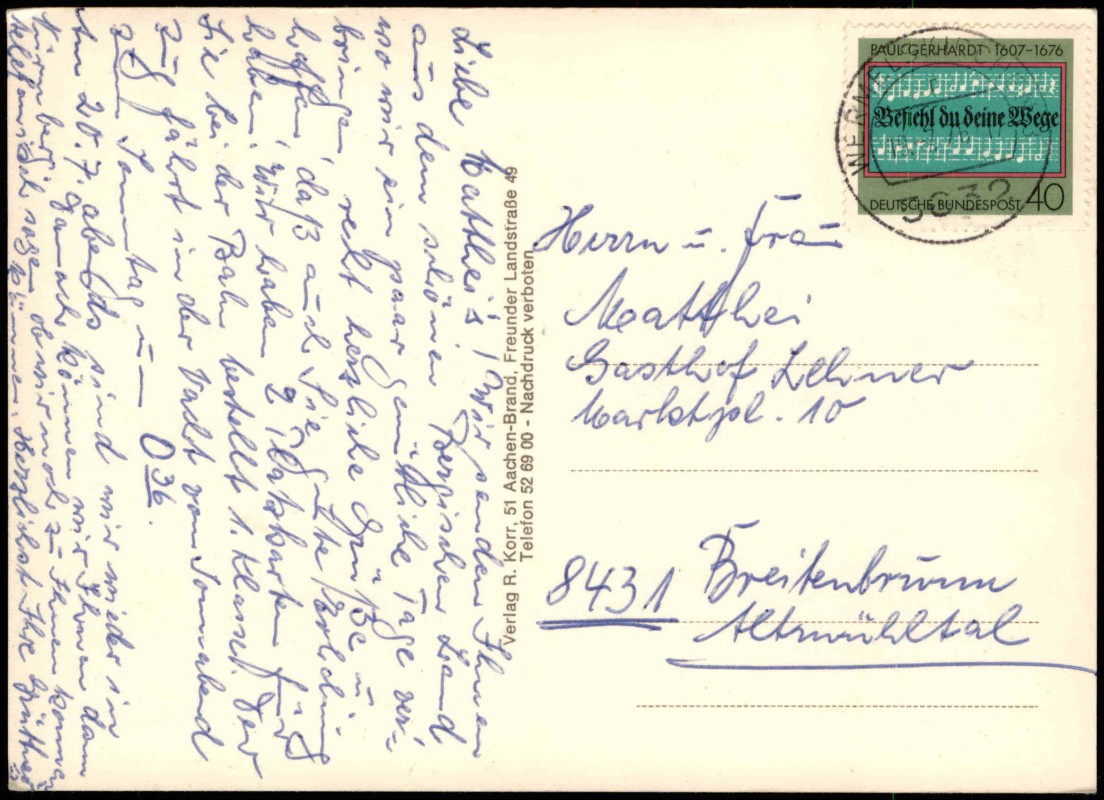 Liebe Matthei's! Wir senden Ihnen
aus dem schönen Bergischen Land
wo wir ein paar gemütliche Tage ver-
bringen, recht herzliche Grüße u.
hoffen, daß auch Sie gute Erholung
haben. Wir haben 2 Platzkarten für
Sie bei der Bahn bestellt 1. Klasse. Der
Zug fährt in der Nacht von Sonnabend
zum Sonntag um 0 36.
Am 20.7. abends sind wir wieder in
Nürnberg. Danach können wir Ihnen dann
sagen ob wir noch zu Ihnen kommen
können. Herzlichst Ihre
Verlag R. Korr, 51 Aachen-Brand, Freunder Landstraße 49
Telefon 52 69 00 - Nachdruck verboten
PAUL GERHARDT 1607-1676
Befiehl du deine Wege
DEUTSCHE BUNDESPOST 40
Herrn u. Frau
Matthei
Gasthof Lehner
Marktpl. 10
8431 Breitenbrunn
Altmühltal